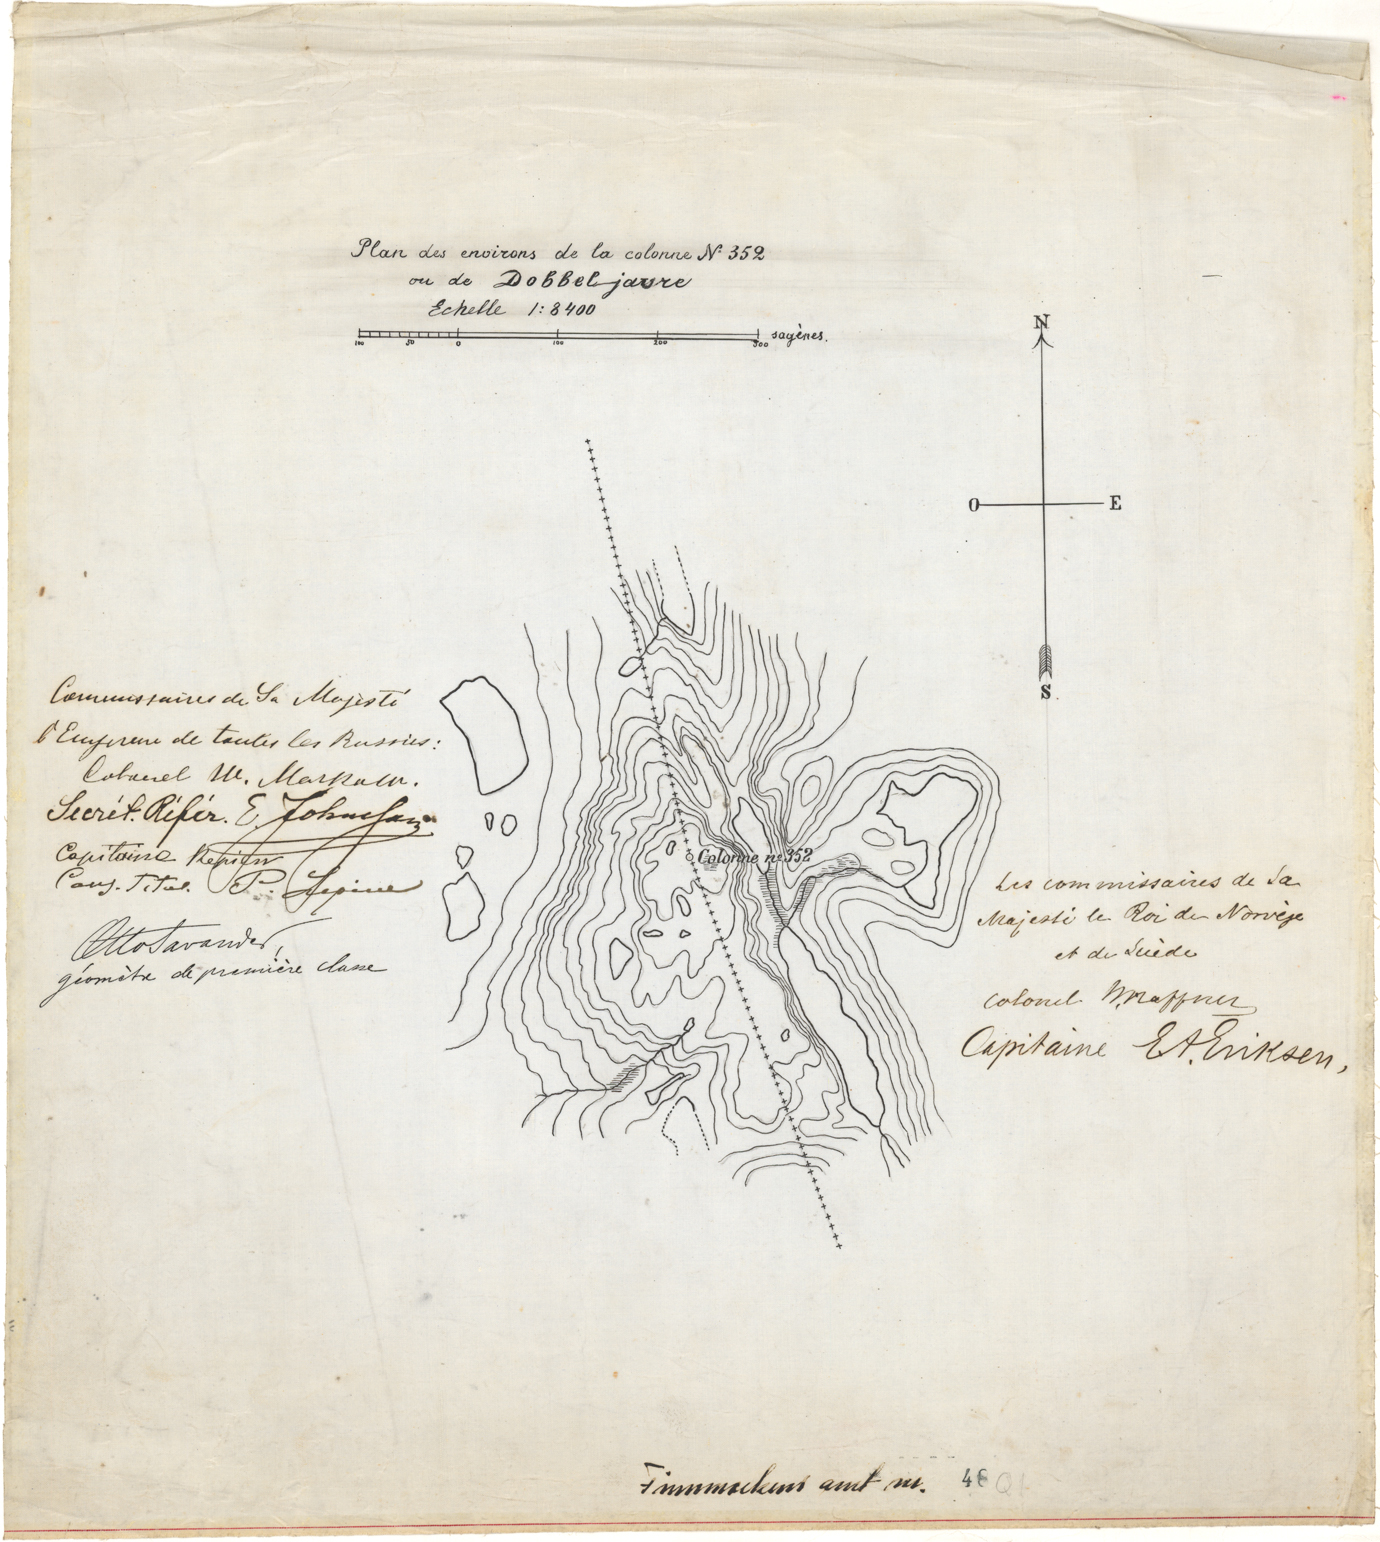 Plan des environs de la colonne No 352
ou de Dobbeljavre
Echelle 1:8400
100 50 0 100 200 300 sagènes.
N
O E
S.
Commissaires de Sa Majesté
l'Empereur de toutes les Russies:
Colonel
Secrét. Référ. E.
Capitaine
P.
Colonne no 352
Les commissaires de Sa
Majesté le Roi de Norvège
et de Suède
Otto Savander,
géomètre de première classe
colonel
Capitaine E A. Eriksen,
Finmarkens amt nr. 46